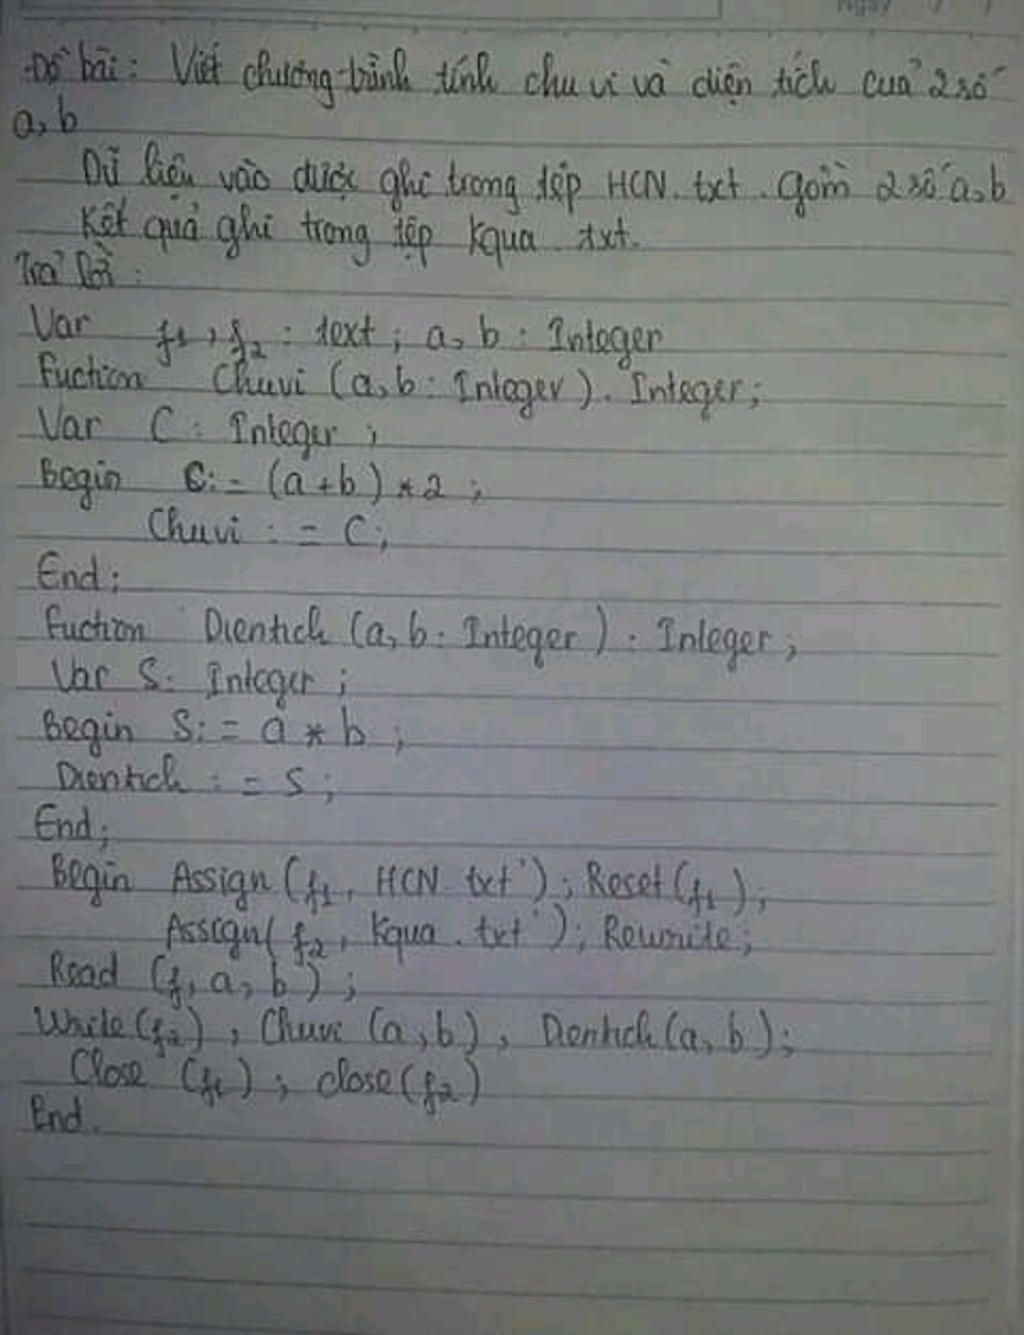 Đề bài: Viết chương trình tính chu vi và diện tích của 2 số
a, b
Dữ liệu vào được ghi trong tệp HCN.txt. Gồm 2 số a, b
Kết quả ghi trong tệp Kqua.txt.
Trả lời:
Var f1, f2 : text ; a, b : Integer
Fuction Chuvi (a, b : Integer) . Integer ;
Var C : Integer ;
Begin C := (a + b) * 2 ;
Chuvi := C ;
End ;
Fuction Dientich (a, b : Integer) : Integer ,
Var S : Integer ;
Begin S := a * b ;
Dientich := S ;
End ;
Begin Assign (f1, HCN txt') ; Reset (f1) ;
Assign( f2, Kqua . txt') ; Rewrite ;
Read (f, a, b) ;
Write (f2) , Chuvi (a, b) , Dientich (a, b) ;
Close (f1) ; close (f2)
End .